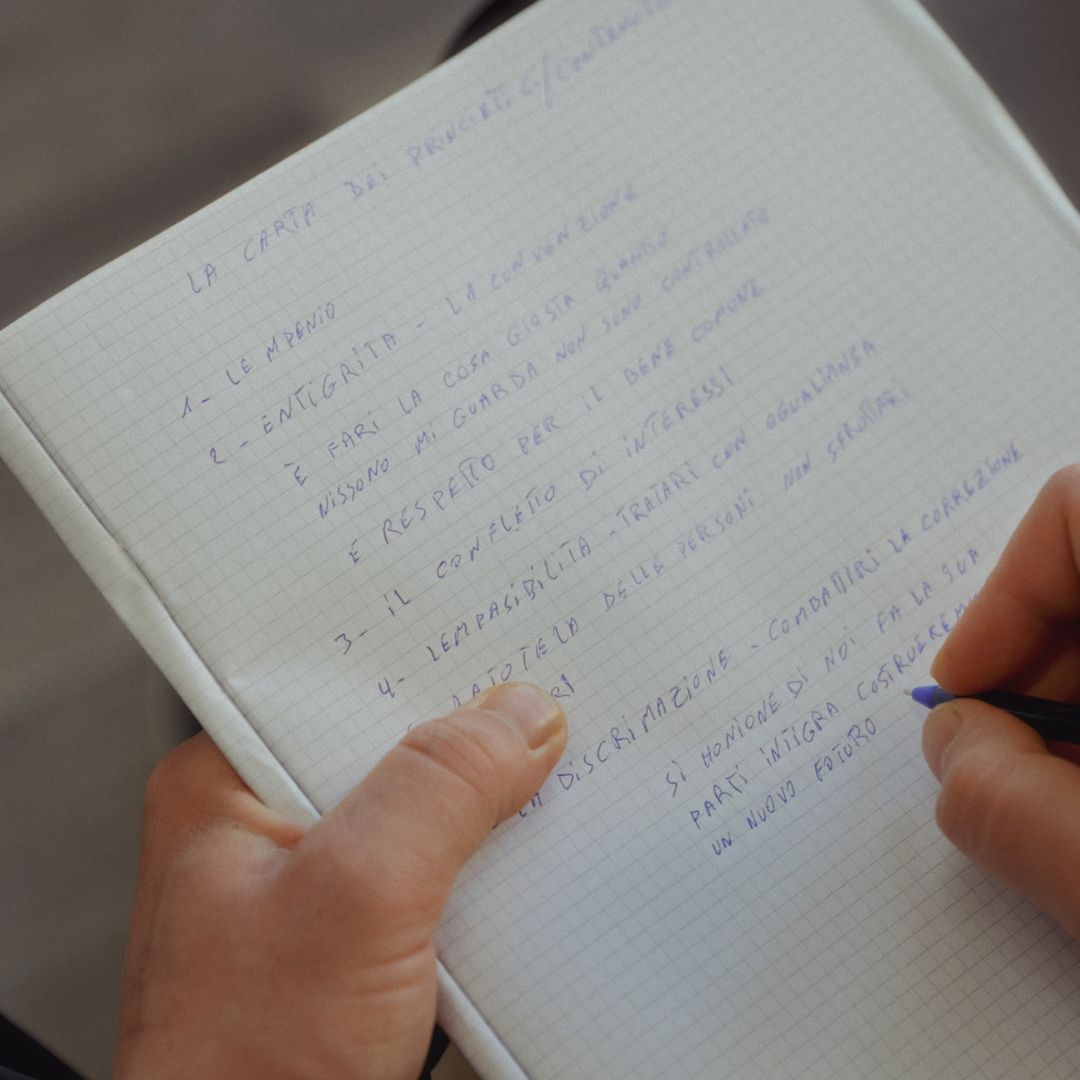 LA CARTA DEI PRINCIATI
1- LE MPENIO
2- ENTIGRITA - LA CONVENZIONE
È FARI LA COSA GIOSTA QUANDO
NISSONO MI GUARDA NON SONO CONTROLLATO
E RESPETTO PER IL BENE COMONE
3- IL CONFLETTO DI INTERESSI
4- LEMPASIBILITA - TRATARI CON OGUALIANSA
DELLE PERSONI NON SFROTTARI
LA DISCRIMAZIONE - COMBATTIRI LA CORREZIONE
SI HONIONE DI NOI FA LA SUA
PARTI INTIGRA COSTRUEREMO
UN NUOVO FOTURO